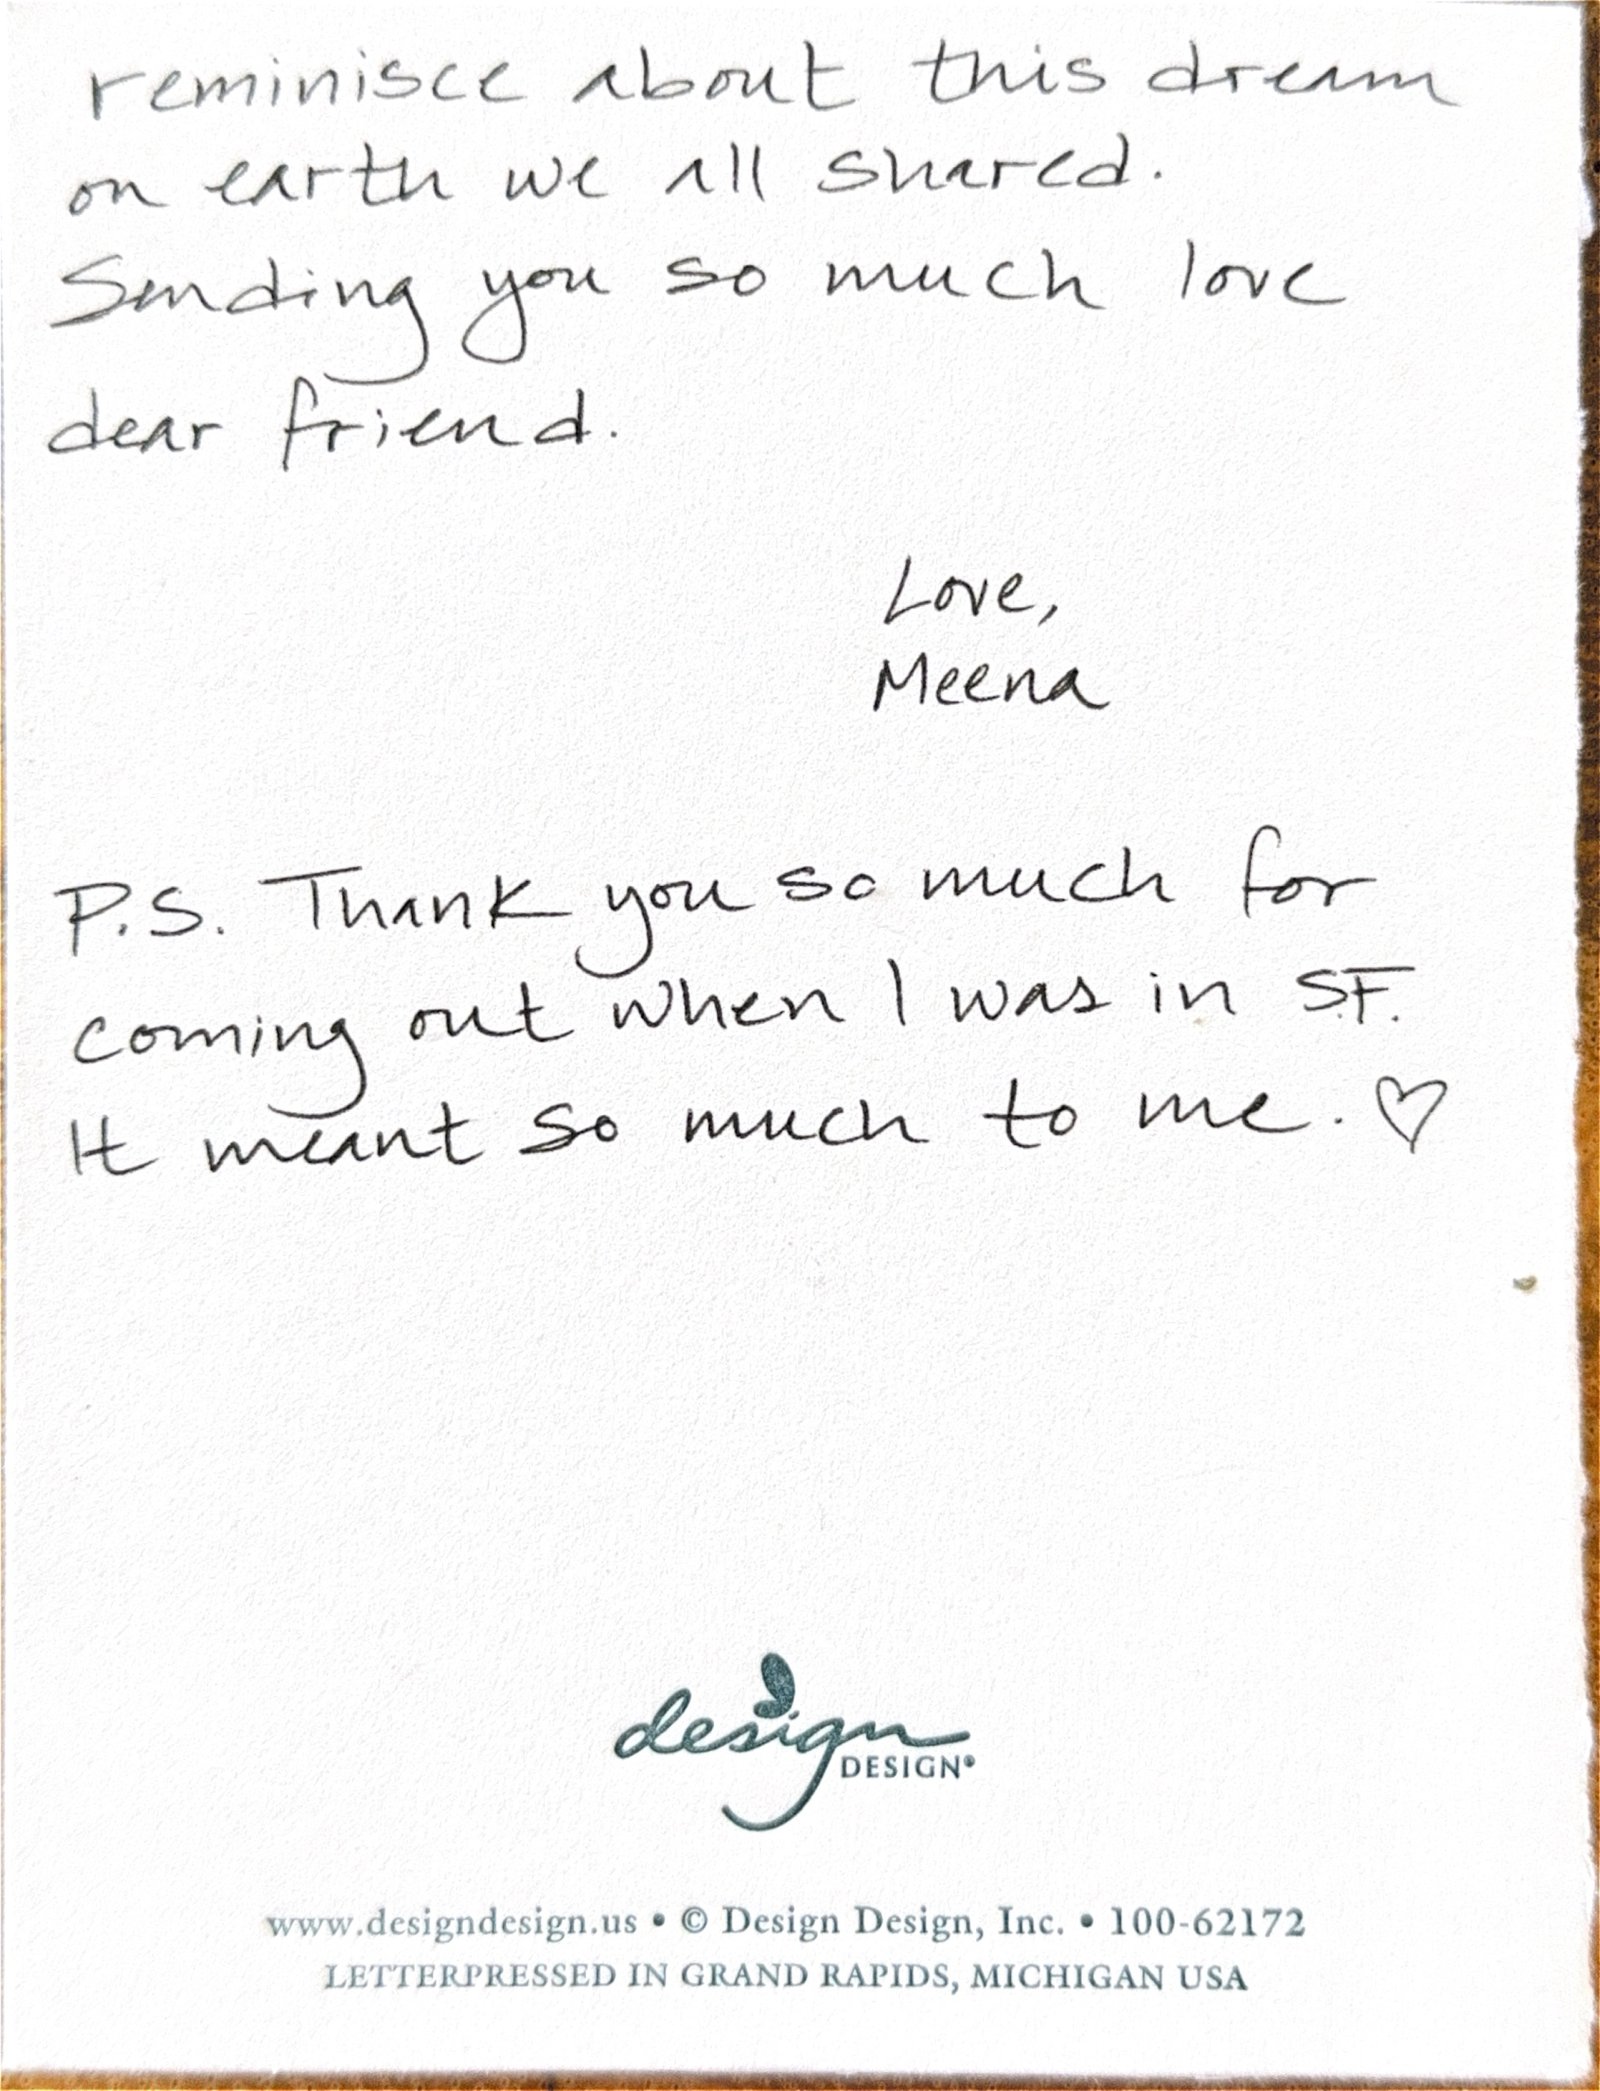 reminisce about this dream
on earth we all shared.
Sending you so much love
dear friend.
Love,
Meena
P.S. Thank you so much for
coming out when I was in S.F.
It meant so much to me. ♡
design
DESIGN®
www.designdesign.us • © Design Design, Inc. • 100-62172
LETTERPRESSED IN GRAND RAPIDS, MICHIGAN USA